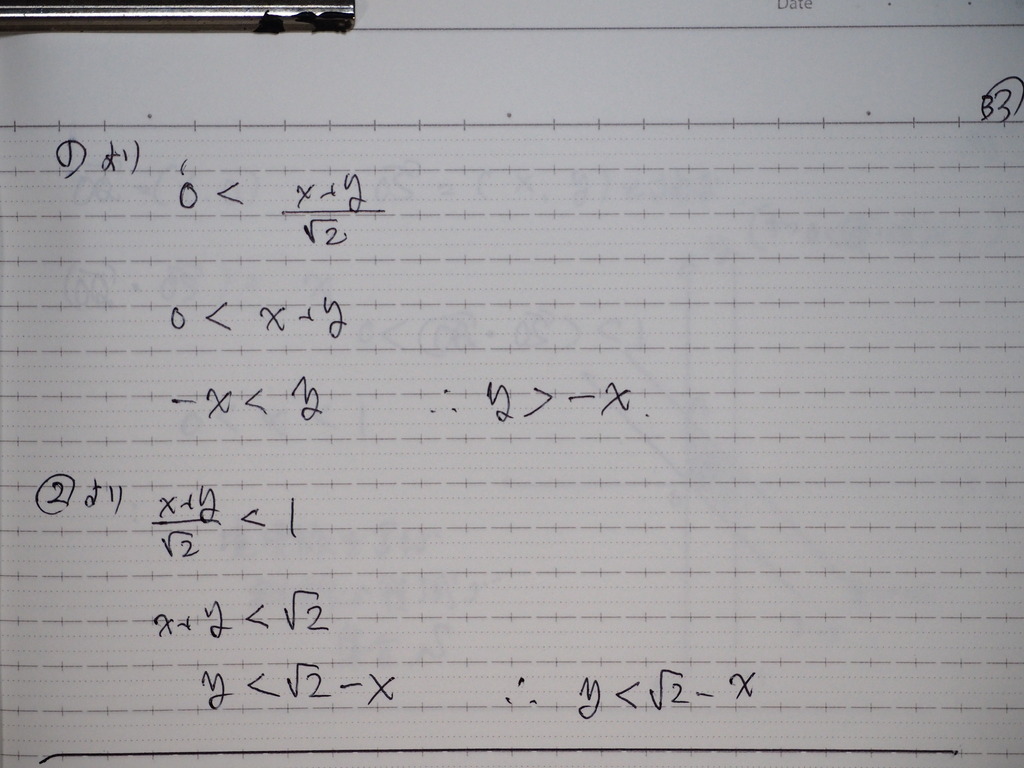 Date
33
① より 0 < x+y/√2
0 < x+y
-x < y ∴ y > -x.
② より x+y/√2 < 1
x+y < √2
y < √2 - x ∴ y < √2 - x